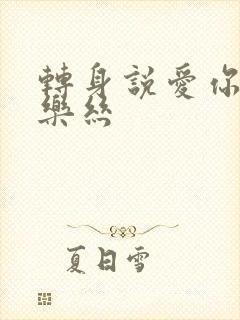 轉身說愛你
樂絲
夏日雪